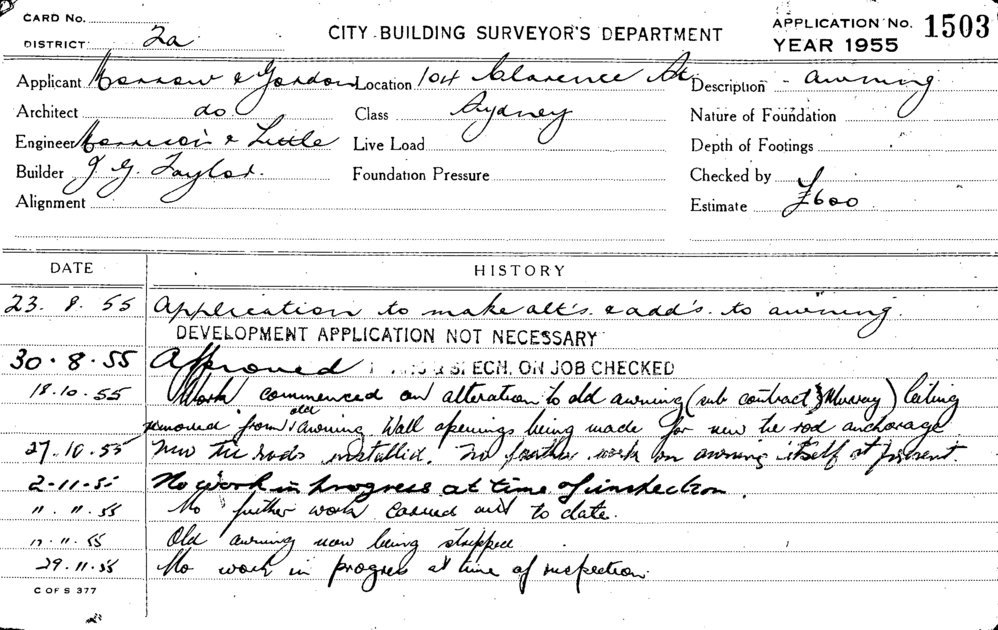 CARD No.
DISTRICT 2a
CITY BUILDING SURVEYOR'S DEPARTMENT
APPLICATION No. 1503
YEAR 1955
Applicant Morrow & Gordon Location 104 Clarence St. Description awning
Architect do Class Sydney Nature of Foundation
Engineer Morrison & Little Live Load Depth of Footings
Builder J. G. Taylor. Foundation Pressure Checked by
Alignment Estimate £600
DATE HISTORY
23. 8. 55 Application to make alt's. & add's. to awning.
DEVELOPMENT APPLICATION NOT NECESSARY
30. 8. 55 Approved & SPECN. ON JOB CHECKED
18.10.55 Work commenced on alteration to old awning (sub contract Murray) Ceiling
removed from old awning Wall openings being made for new tie rod anchorage
27.10.55 New tie rods installed. No further work on awning itself at present.
2-11-55 No work in progress at time of inspection.
11. 11. 55 No further work carried out to date.
11. 55 Old awning now being stripped
29.11.55 No work in progres at time of inspection.
C OF S 377